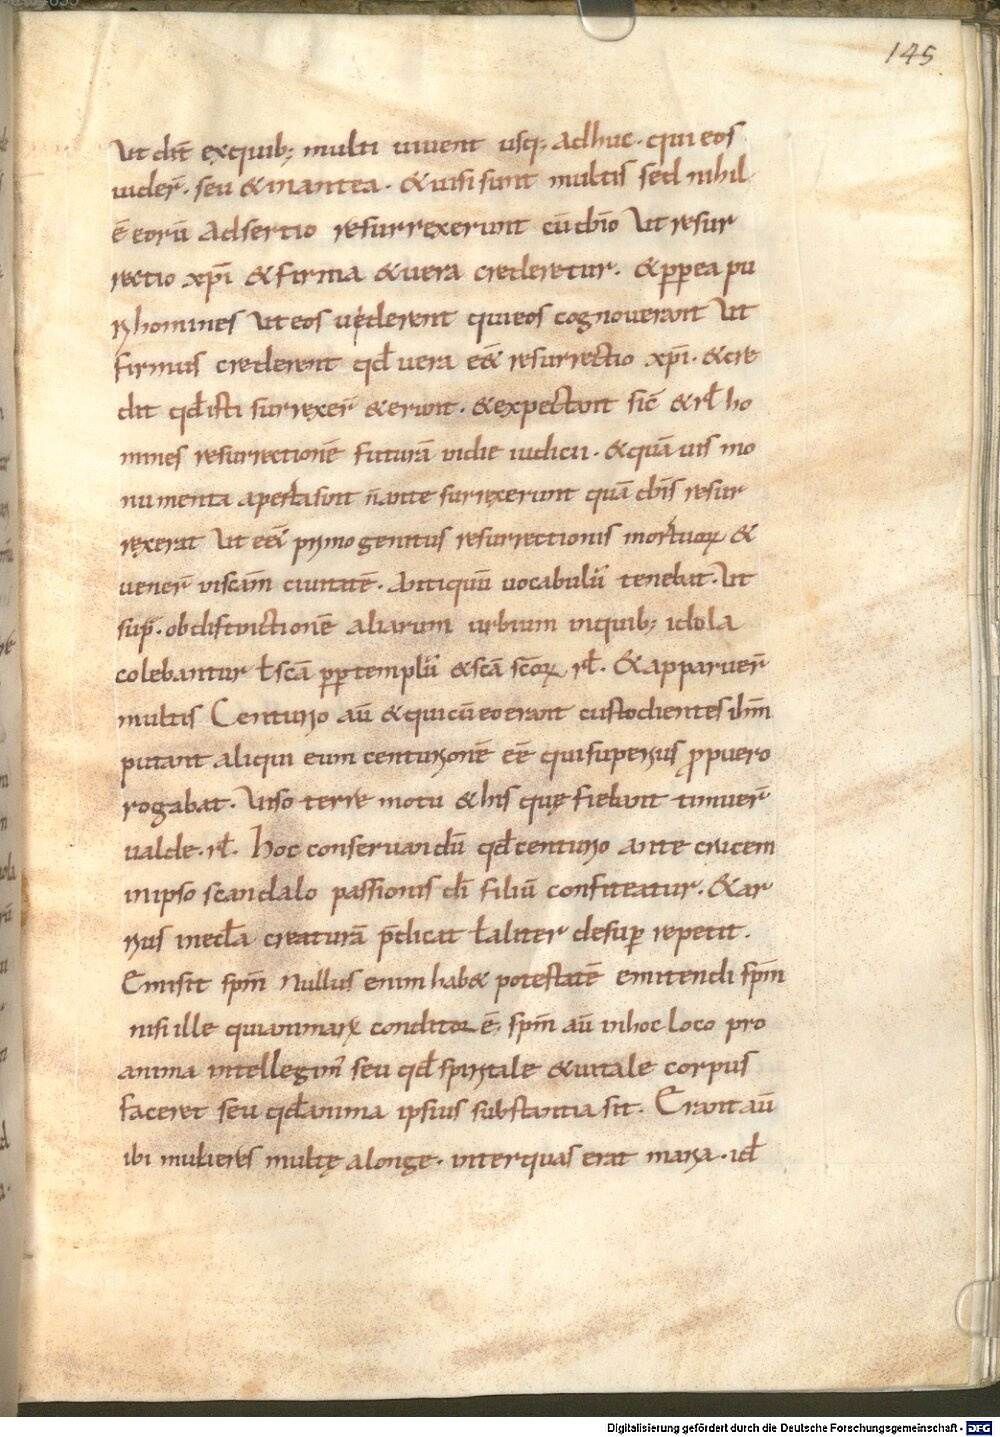 145
Ut dic̄t exquib; multi uiuent usq; adhuc · qui eos
uider̄ · seu & in antea · & uisi sunt multis sed nihil
ē eorū adsertio resurrexerunt cū dn̄o Ut resur
rectio xp̄i & firma & uera crederetur · & pp ea pu
ri homines Ut eos uiderent qui eos cognouerant Ut
firmius crederent qd̄ uera eē& resurrectio xp̄i · & cre
dit qd̄ isti surrexer̄ & erunt · & expectant sic̄ & rl̄ ho
mines resurrectionē futurā in die iudicii · & quā uis mo
numenta aperta sunt n̄ ante surrexerunt quā dn̄s resur
rexerat Ut eē& primogenitus resurrectionis mortuoꝝ &
uener̄ in scam̄ ciuitatē · Antiquū uocabulū tenebat · Ut
sup̄ · ob distinctionē aliarum urbium in quib; idola
colebantur ł scā pp templū & scā scōꝝ rl̄ · & apparuer̄
multis Centurio aū & qui cū eo erant custodientes ihm̄
putant aliqui eum centurionē eē qui superius p puero
rogabat · Uiso terre motu & his quę fiebant timuer̄
ualde · rl̄ · Hoc conseruandū qd̄ centurio ante crucem
in ipso scandalo passionis dī filiū confiteatur · & ar
rius in eccl̄a creaturā p̄dicat ł aliter desup repetit ·
Emisit spm̄ Nullus enim hab& potestatē emitendi spm̄
nisi ille qui animarꝝ conditor ē, spm̄ aū in hoc loco pro
anima intellegim̄ seu qd̄ spiritale & uitale corpus
faceret seu qd̄ anima ipsius substantia sit · Erant aū
ibi mulieres multę a longe · inter quas erat maria · id̄
Digitalisierung gefördert durch die Deutsche Forschungsgemeinschaft - DFG